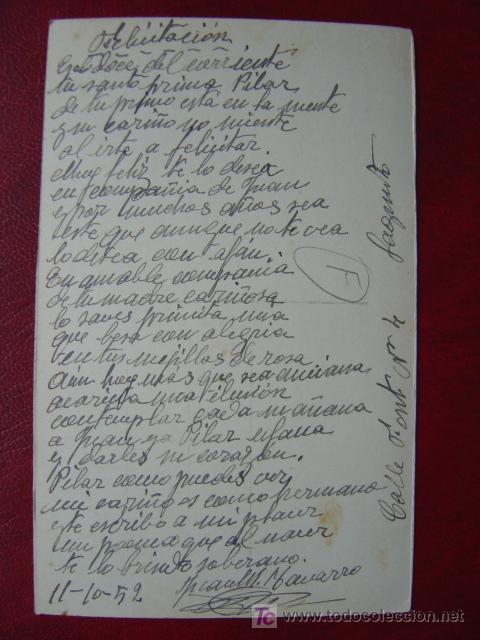 Felicitación
Es doce del corriente
tu santo prima Pilar
de tu primo está en la mente
y su cariño no miente
al irte a felicitar.
Muy feliz te lo desea
en compañia de Juan
y por muchos años sea
este que aunque no te vea
lo desea con afán.
En amable compania
de tu madre cariñosa
lo saves primita mia
que besa con alegria
en tus mejillas de rosa
Aún hoy más que sea anciana
acaricia una ilusión
contemplar cada mañana
a Juan y a Pilar ufana
y darles su corazón.
Pilar como puedes ver
mi cariño es como hermano
te escribo a mi placer
un poema que al nacer
te lo brindo soberano.
11-10-52 Navarro
F
Calle Font Sagunto
TC todocoleccion
www.todocoleccion.net